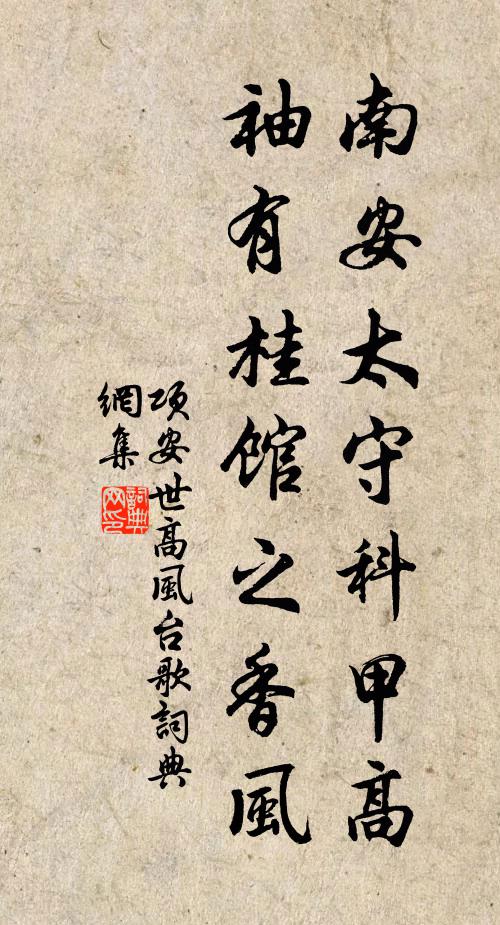 南安太守科甲高
袖有桂館之香風
項安世高風台歌詞典
網集
詞典网印